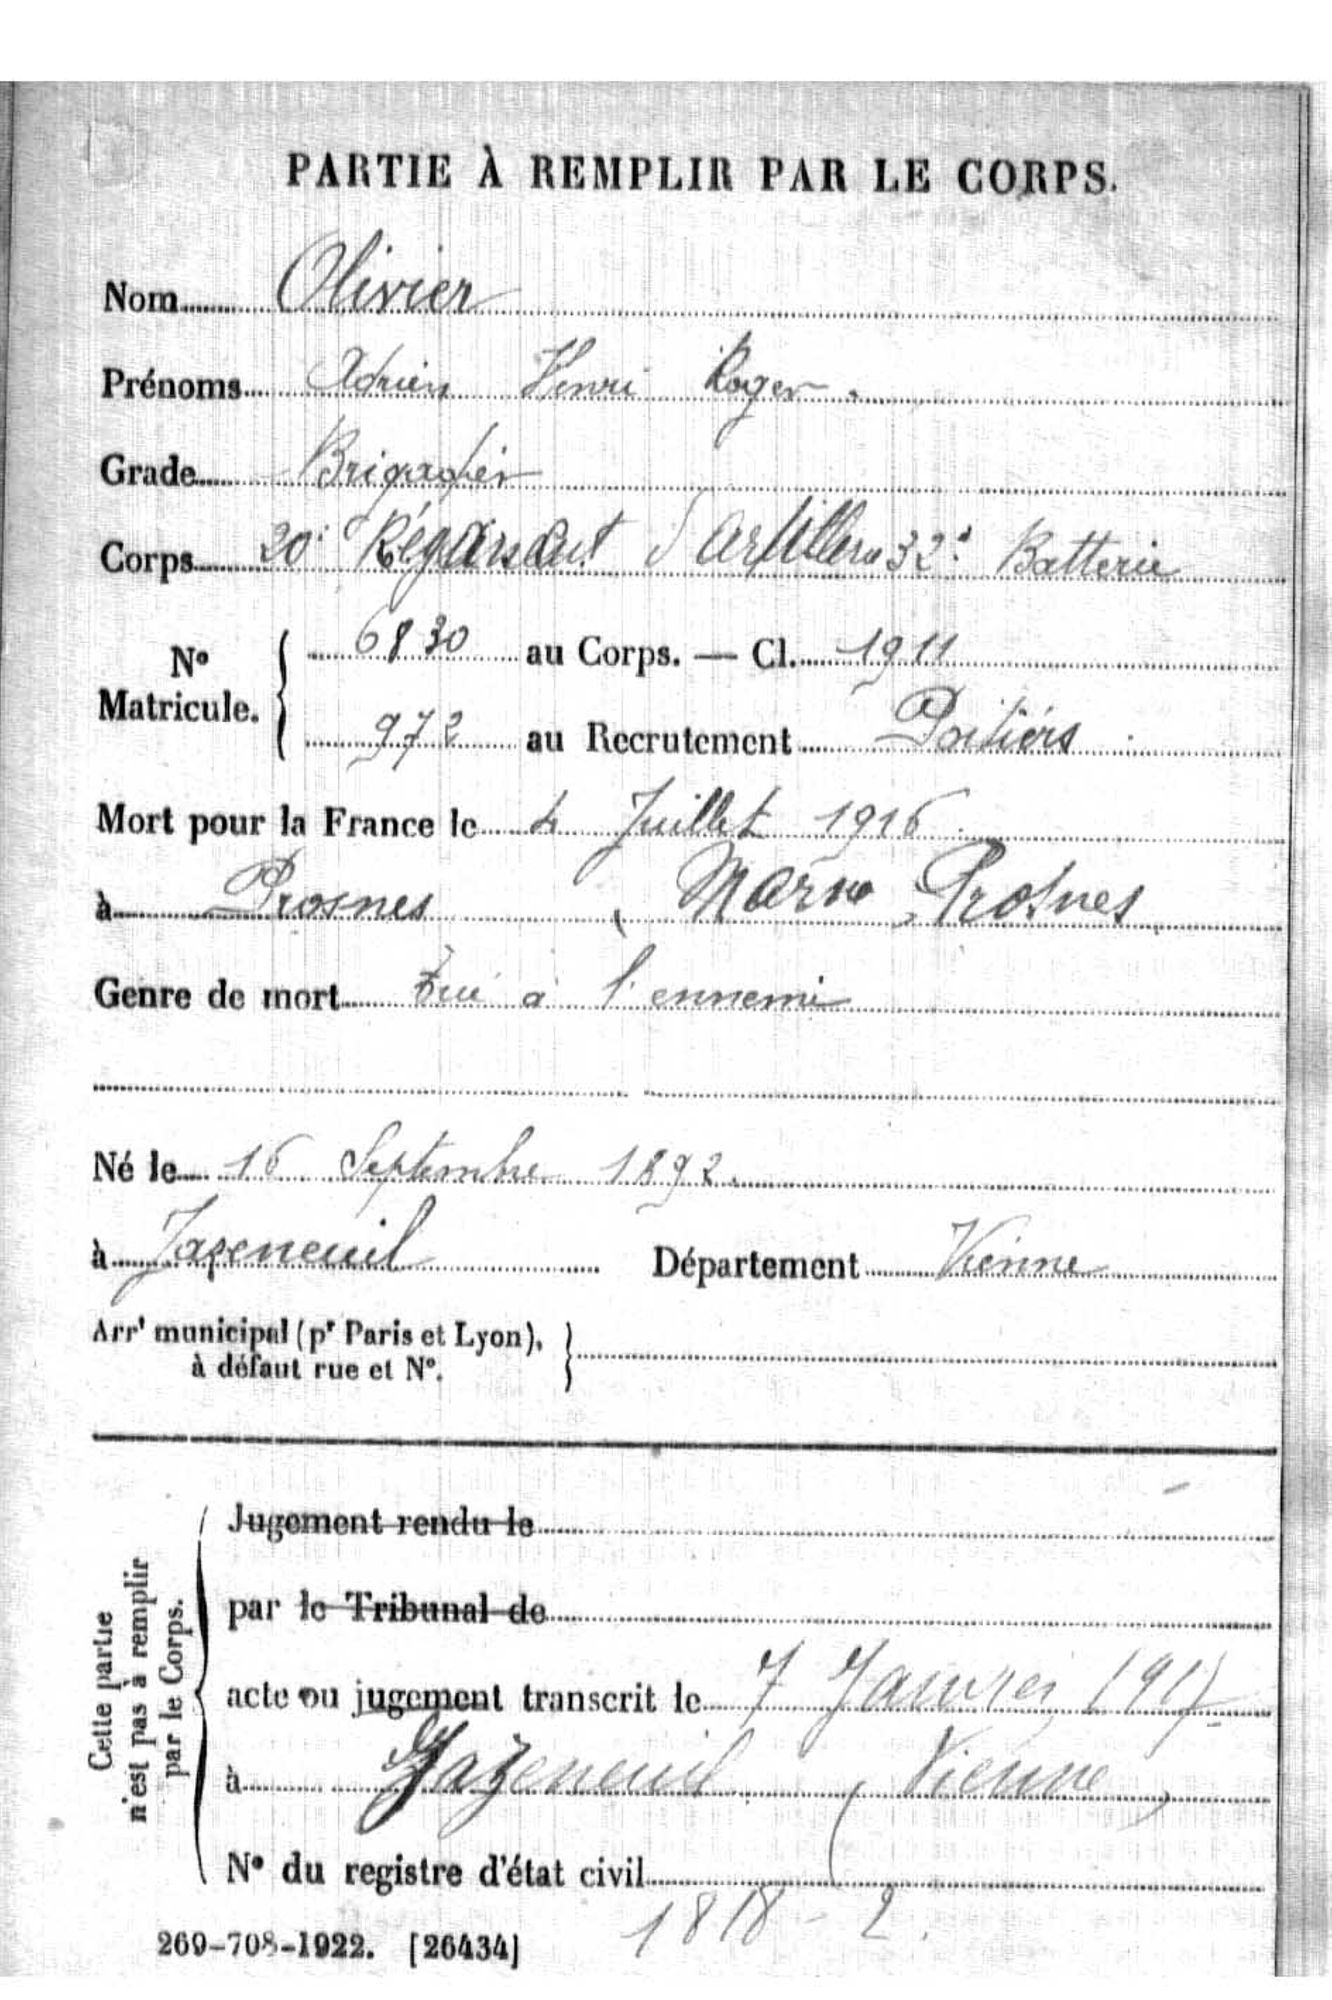 PARTIE À REMPLIR PAR LE CORPS.
Nom Olivier
Prénoms Adrien Henri Roger.
Grade Brigadier
Corps 20e Régiment d'artillerie 32e Batterie
No Matricule. { 6830 au Corps. — Cl. 1911
972 au Recrutement Poitiers
Mort pour la France le 4 Juillet 1916
à Prosnes ( Marne Prosnes
Genre de mort tué à l'ennemi
Né le 16 Septembre 1892.
à Jazeneuil Département Vienne
Arrt municipal (pr Paris et Lyon), }
à défaut rue et No.
Cette partie
n'est pas à remplir
par le Corps.
Jugement rendu le
par le Tribunal de
acte ou jugement transcrit le 7 Janvier 1917
à Jazeneuil (Vienne)
No du registre d'état civil
1818 - 2.
269-708-1922. [26434]